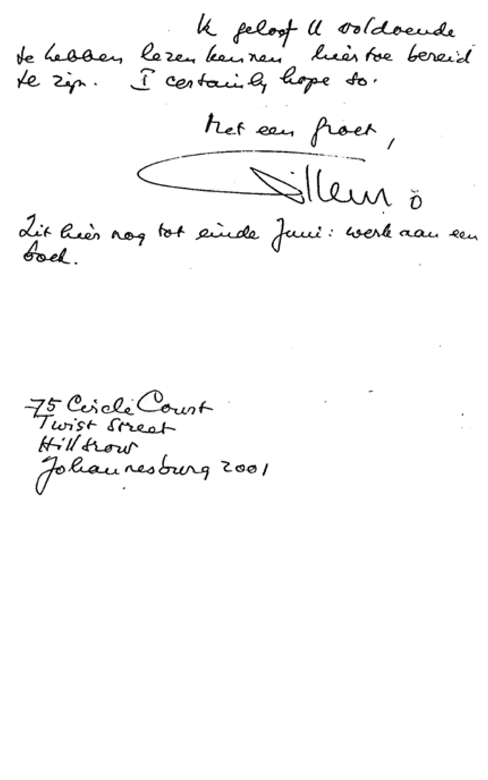 Ik geloof U voldoende
te hebben lezen kennen hiertoe bereid
te zijn. I certainly hope so.
Met een groet,
Willem Ö
Zit hier nog tot einde Juni: werk aan een
boek.
75 Circle Court
Twist Street
Hillbrow
Johannesburg 2001